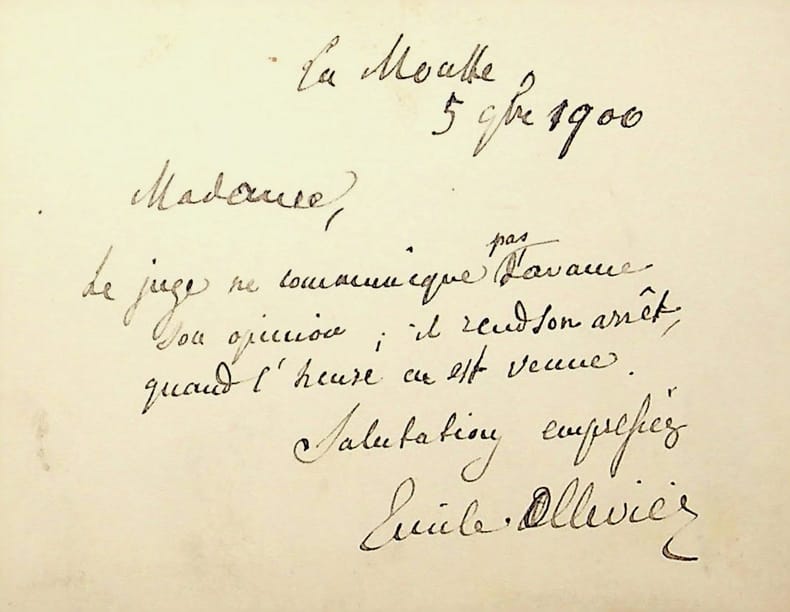 La Moutte
5 9bre 1900
Madame,
pas
Le juge ne communique d'avance
son opinion ; il rend son arrêt,
quand l'heure en est venue.
Salutations empressées
Emile Ollivier